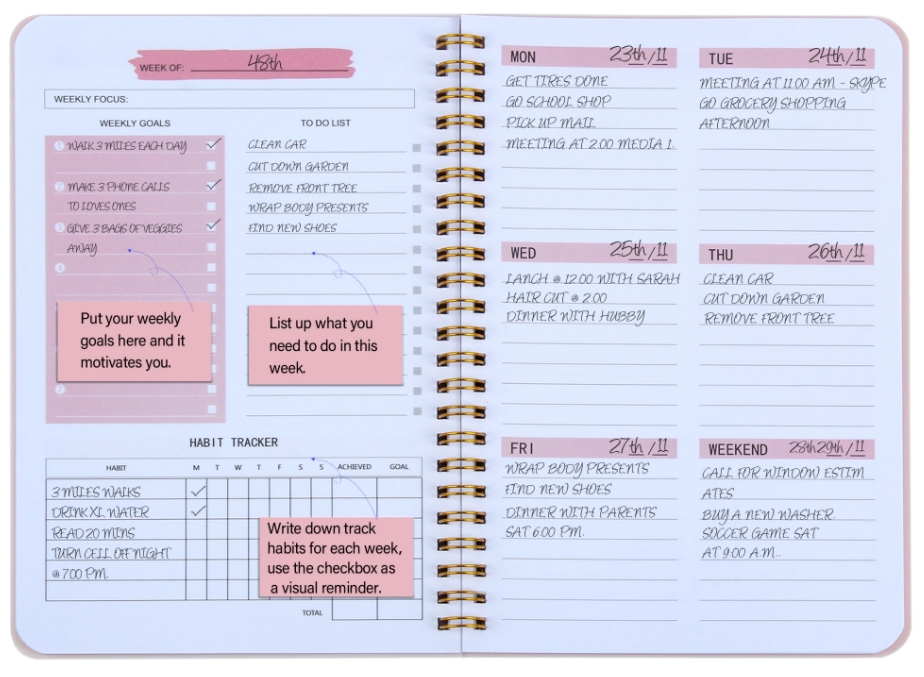 WEEK OF: 48th
WEEKLY FOCUS:
WEEKLY GOALS
1 WALK 3 MILES EACH DAY
2 MAKE 3 PHONE CALLS
TO LOVES ONES
3 GIVE 3 BAGS OF VEGGIES
AWAY
4
Put your weekly
goals here and it
motivates you.
7
TO DO LIST
CLEAN CAR
CUT DOWN GARDEN
REMOVE FRONT TREE
WRAP BODY PRESENTS
FIND NEW SHOES
List up what you
need to do in this
week.
HABIT TRACKER
HABIT M T W T F S S ACHIEVED GOAL
3 MILES WALKS
DRINK XL WATER
READ 20 MINS
TURN CELL OFF NIGHT
@ 7:00 PM.
Write down track
habits for each week,
use the checkbox as
a visual reminder.
TOTAL
MON 23th/11
GET TIRES DONE
GO SCHOOL SHOP
PICK UP MAIL
MEETING AT 2:00 MEDIA 1.
TUE 24th/11
MEETING AT 11:00 AM - SKYPE
GO GROCERY SHOPPING
AFTERNOON
WED 25th/11
LANCH @ 12:00 WITH SARAH
HAIR CUT @ 2:00
DINNER WITH HUBBY
THU 26th/11
CLEAN CAR
CUT DOWN GARDEN
REMOVE FRONT TREE
FRI 27th/11
WRAP BODY PRESENTS
FIND NEW SHOES
DINNER WITH PARENTS
SAT 6:00 PM.
WEEKEND 28th29th/11
CALL FOR WINDOW ESTIM
ATES
BUY A NEW WASHER.
SOCCER GAME SAT
AT 9:00 A.M..